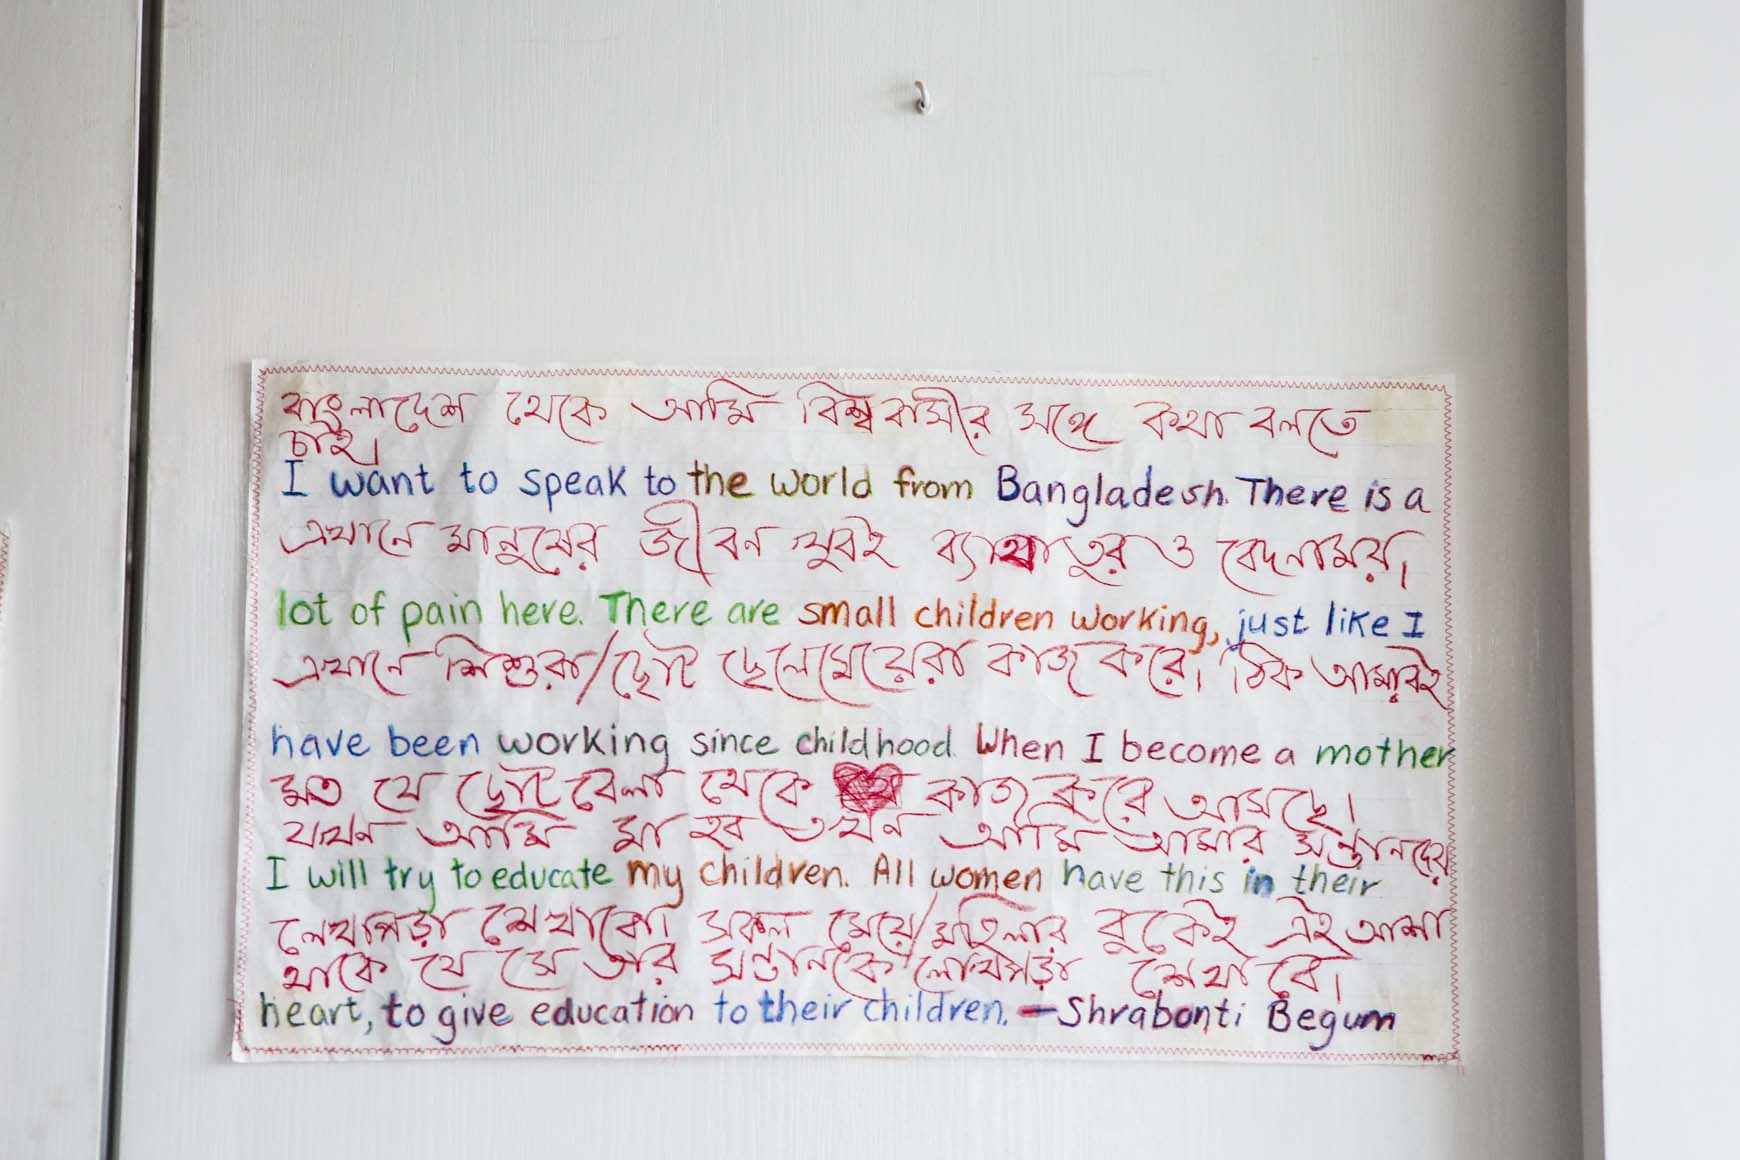 বাংলাদেশ থেকে আমি বিশ্ববাসীর সঙ্গে কথা বলতে
চাই।
I want to speak to the world from Bangladesh. There is a
এখানে মানুষের জীবন খুবই ব্যাথাতুর ও বেদনাময়।
lot of pain here. There are small children working, just like I
এখানে শিশুরা/ছোট ছেলেমেয়েরা কাজ করে। ঠিক আমারই
have been working since childhood. When I become a mother
মত যে ছোট বেলা থেকে কাজ করে আসছে।
যখন আমি মা হব তখন আমি আমার সন্তানদের
I will try to educate my children. All women have this in their
লেখাপড়া শেখাবো। সকল মেয়ে/মহিলার বুকেই এই আশা
থাকে যে সে তার সন্তানকে লেখাপড়া শেখাবে।
heart, to give education to their children. —Shrabonti Begum